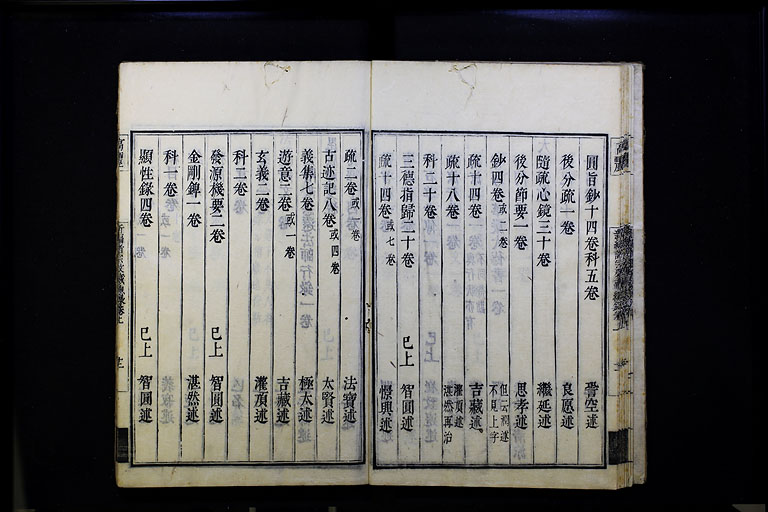 圓旨鈔十四卷科五卷 晉空述
後分疏一卷 良愿述
隨疏心鏡三十卷 繼延述
後分節要一卷 思孝述
鈔四卷或二卷 但云祠述不見上字
疏十四卷 吉藏述
疏十八卷 灌頂述湛然再治
科二十卷
三德指歸二十卷 已上 智圓述
疏十四卷或七卷 憬興述
疏二卷或一卷 法寶述
古迹記八卷或四卷 太賢述
義集七卷 極太述
遊意二卷或一卷 吉藏述
玄義二卷 灌頂述
科二卷
發源機要二卷 已上 智圓述
金剛錍一卷 湛然述
科一卷
顯性錄四卷 已上 智圓述